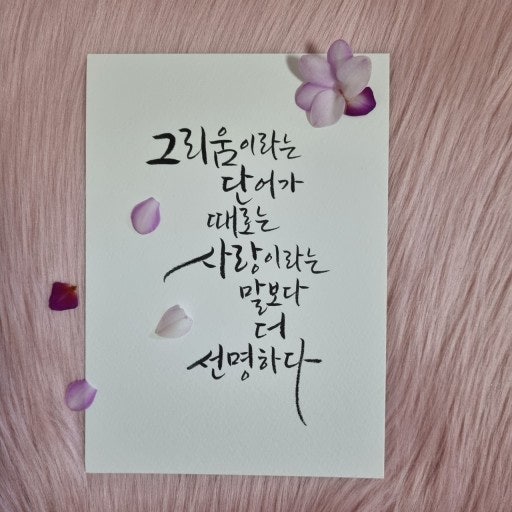 그리움이라는
단어가
때로는
사랑이라는
말보다
더
선명하다